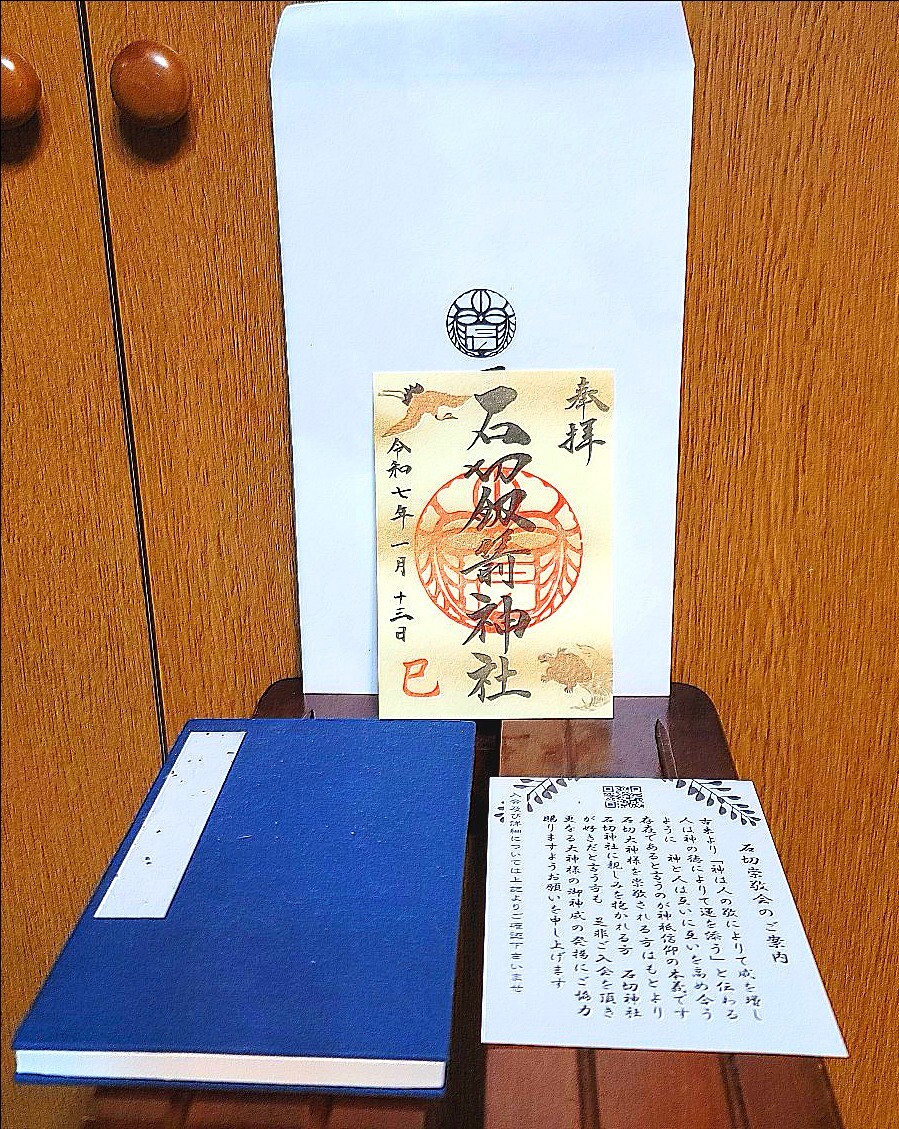 奉拝
石切劔箭神社
令和七年一月十三日
巳
石切崇敬会のご案内
古来より「神は人の敬によりて威を増し
人は神の徳によりて運を添う」と伝わる
ように 神と人は互いに互いを高め合う
存在であると言うのが神祇信仰の本義です
石切大神様を崇敬される方はもとより
石切神社に親しみを抱かれる方 石切神社
が好きだと言う方も 是非ご入会を頂き
更なる大神様の御神威の発揚にご協力
賜りますようお願いを申し上げます
入会及び詳細については上記よりご確認下さいませ